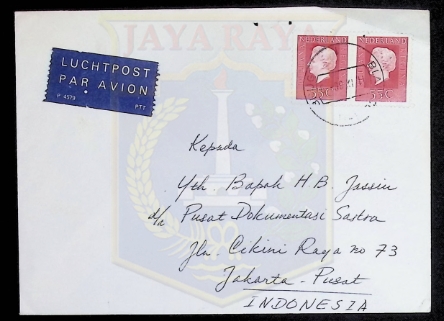 JAYA RAYA
LUCHTPOST
PAR AVION
P 4979
PTT
NEDERLAND
75c
NEDERLAND
75c
Kepada
Yth. Bapak H.B. Jassin
d/a Pusat Dokumentasi Sastra
Jln. Cikini Raya no 73
Jakarta-Pusat
INDONESIA